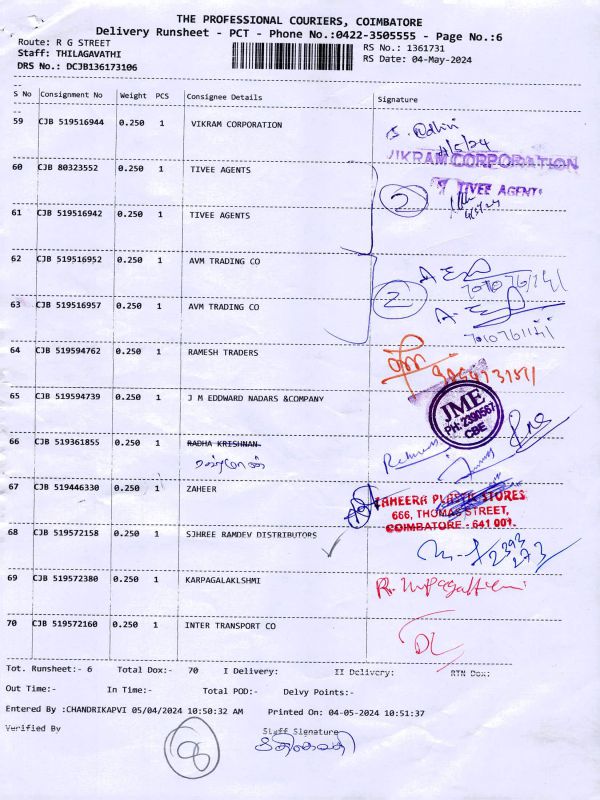 THE PROFESSIONAL COURIERS, COIMBATORE
Delivery Runsheet - PCT - Phone No.:0422-3505555 - Page No.:6
Route: R G STREET RS No.: 1361731
Staff: THILAGAVATHI RS Date: 04-May-2024
DRS No.: DCJB136173106
S No Consignment No Weight PCS Consignee Details Signature
59 CJB 519516944 0.250 1 VIKRAM CORPORATION
VIKRAM CORPORATION
60 CJB 80323552 0.250 1 TIVEE AGENTS
TIVEE AGENTS
2
61 CJB 519516942 0.250 1 TIVEE AGENTS
62 CJB 519516952 0.250 1 AVM TRADING CO
2
63 CJB 519516957 0.250 1 AVM TRADING CO
64 CJB 519594762 0.250 1 RAMESH TRADERS
65 CJB 519594739 0.250 1 J M EDDWARD NADARS &COMPANY
JME
PH: 2390567
CBE
66 CJB 519361855 0.250 1 RADHA KRISHNAN
67 CJB 519446330 0.250 1 ZAHEER
ZAHEERA PLASTIC STORES
666, THOMAS STREET,
COIMBATORE - 641 001.
68 CJB 519572158 0.250 1 SJHREE RAMDEV DISTRIBUTORS
69 CJB 519572380 0.250 1 KARPAGALAKLSHMI
70 CJB 519572160 0.250 1 INTER TRANSPORT CO
Tot. Runsheet:- 6 Total Dox:- 70 I Delivery: II Delivery: RTN Dox:
Out Time:- In Time:- Total POD:- Delvy Points:-
Entered By :CHANDRIKAPVI 05/04/2024 10:50:32 AM Printed On: 04-05-2024 10:51:37
Verified By Staff Signature